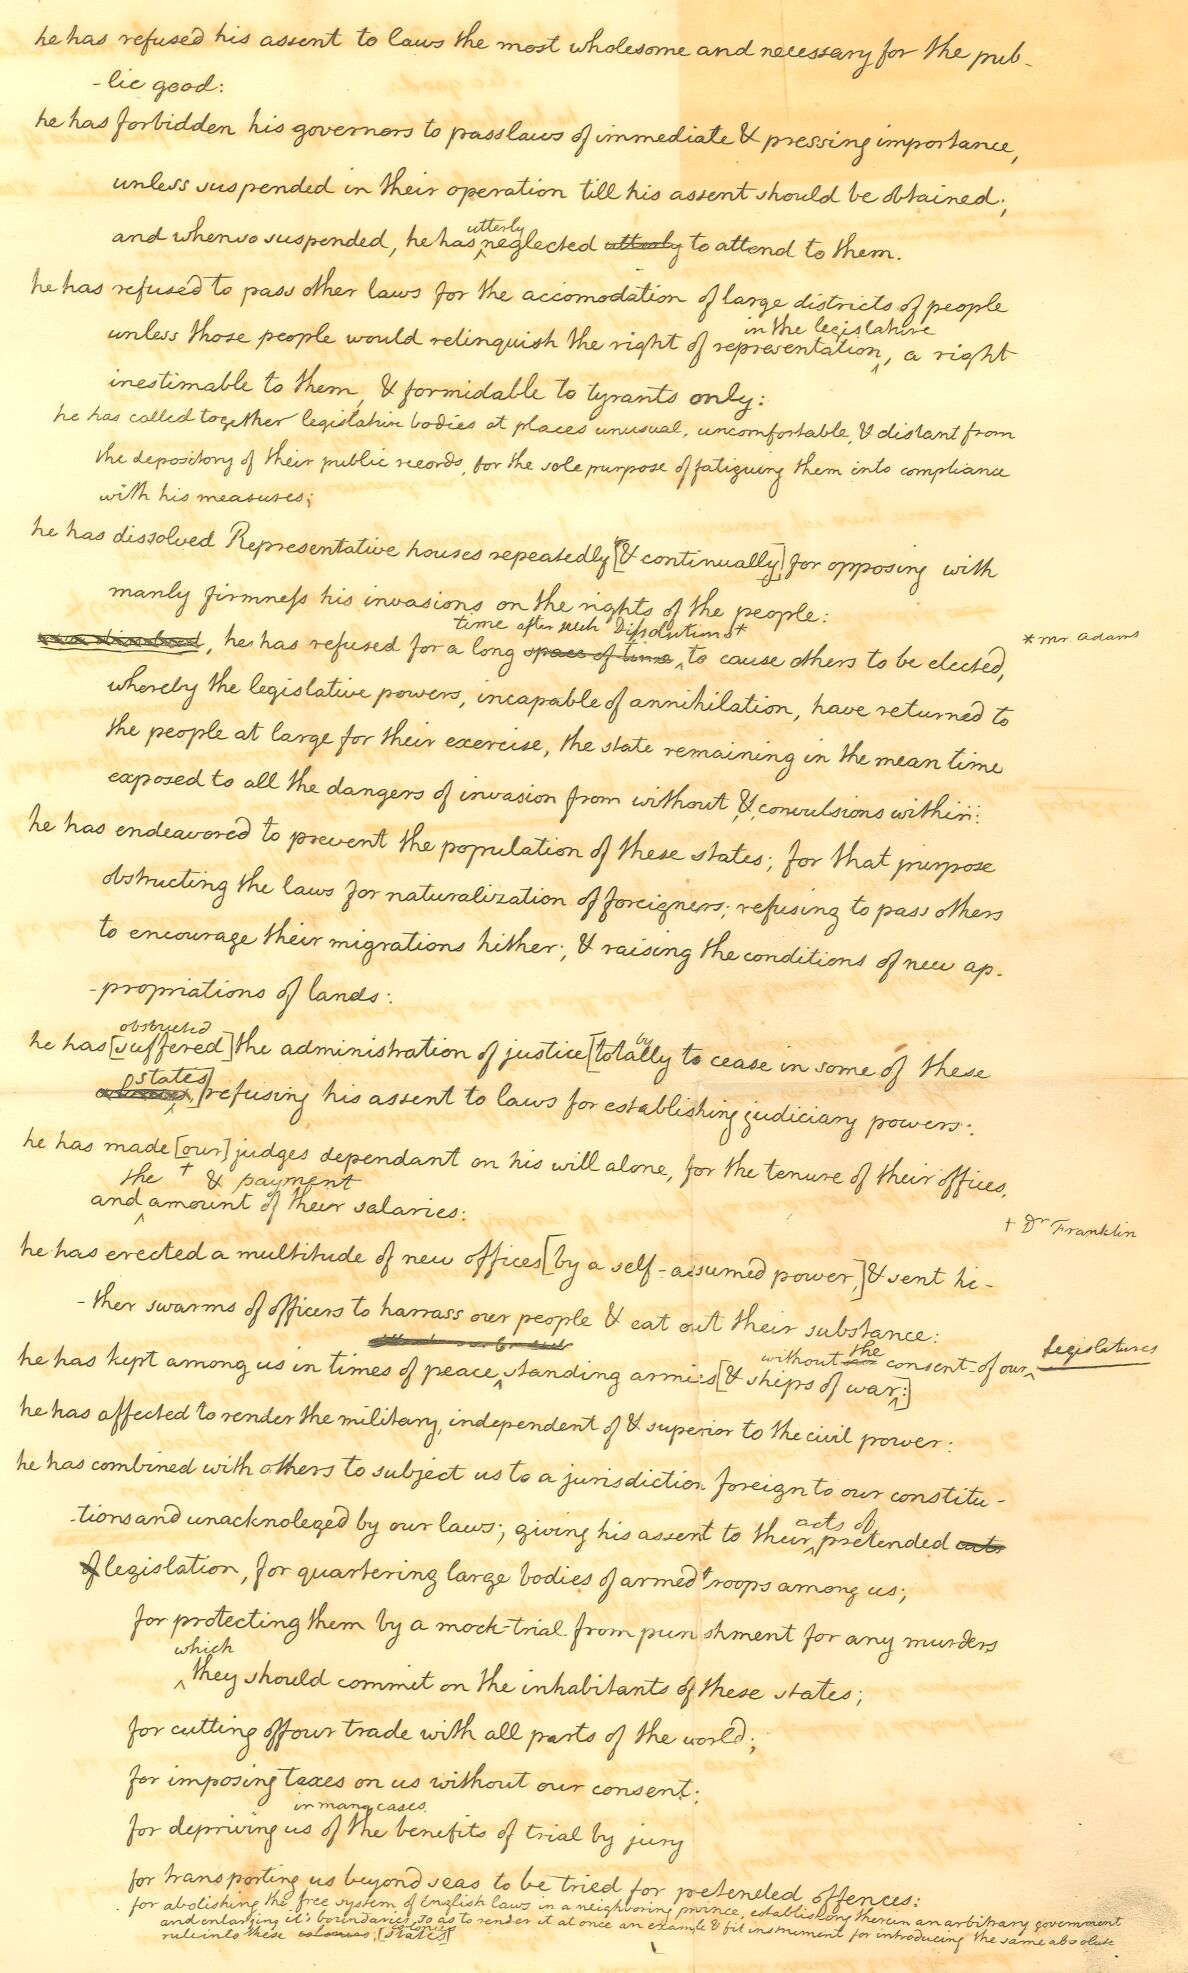 he has refused his assent to laws the most wholesome and necessary for the pub-
-lic good:
he has forbidden his governors to pass laws of immediate & pressing importance,
unless suspended in their operation till his assent should be obtained;
utterly
and when so suspended, he has neglected utterly to attend to them.
he has refused to pass other laws for the accomodation of large districts of people
in the legislature
unless those people would relinquish the right of representation, a right
inestimable to them, & formidable to tyrants only:
he has called together legislative bodies at places unusual, uncomfortable, & distant from
the depository of their public records, for the sole purpose of fatiguing them into compliance
with his measures;
he has dissolved Representative houses repeatedly [& continually] for opposing with
manly firmness his invasions on the rights of the people:
time after such Dissolutions*
he has refused for a long space of time to cause others to be elected,
* Mr. Adams
whereby the legislative powers, incapable of annihilation, have returned to
the people at large for their exercise, the state remaining in the mean time
exposed to all the dangers of invasion from without, & convulsions within:
he has endeavored to prevent the population of these states; for that purpose
obstructing the laws for naturalization of foreigners; refusing to pass others
to encourage their migrations hither; & raising the conditions of new ap-
-propriations of lands:
obstructed by
he has [suffered] the administration of justice [totally to cease in some of these
states
] refusing his assent to laws for establishing judiciary powers:
he has made [our] judges dependant on his will alone, for the tenure of their offices,
the + & payment
and amount of their salaries:
+ Dr Franklin
he has erected a multitude of new offices [by a self-assumed power,] & sent hi-
-ther swarms of officers to harrass our people & eat out their substance:
without the consent of our legislatures
he has kept among us in times of peace, standing armies [& ships of war:]
he has affected to render the military, independent of & superior to the civil power:
he has combined with others to subject us to a jurisdiction foreign to our constitu-
-tions and unacknoleged by our laws; giving his assent to their pretended acts
acts of
of legislation, for quartering large bodies of armed troops among us;
for protecting them by a mock-trial from punishment for any murders
which
they should commit on the inhabitants of these states;
for cutting off our trade with all parts of the world;
for imposing taxes on us without our consent:
in many cases
for depriving us of the benefits of trial by jury
for transporting us beyond seas to be tried for pretended offences:
for abolishing the free system of English laws in a neighboring province, establishing therein an arbitrary government
and enlarging it's boundaries so as to render it at once an example & fit instrument for introducing the same absolute
colonies
rule into these colonies; [states]